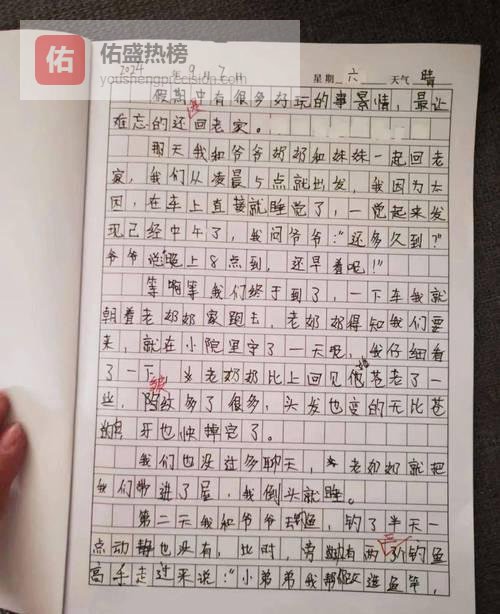 佑
佑盛热榜
youshengprecision.com
2024年9月7日 星期六 天气晴
假期中有很多好玩的事情，最让
难忘的还回老家。
那天我和爷爷奶奶和妹妹一起回老
家，我们从凌晨5点就出发，我因为太
困，在车上直接就睡觉了，一觉起来发
现已经中午了，我问爷爷：“还多久到？”
爷爷说：“晚上8点到，还早着呢！”
等啊等我们终于到了，一下车我就
朝着老奶奶家跑去，老奶奶得知我们要
来，就在小院里守了一天呢，我仔细看
了一下，老奶奶比上回见她苍老了一
些，皱纹多了很多，头发也变的无比苍
，牙也快掉完了。
我们也没过多聊天，老奶奶就把
我们带进了屋，我倒头就睡。
第二天我和爷爷去钓鱼，钓了半天一
点动静也没有，此时，旁边有两三个钓鱼
高手走过来说：“小弟弟我帮你选鱼竿，